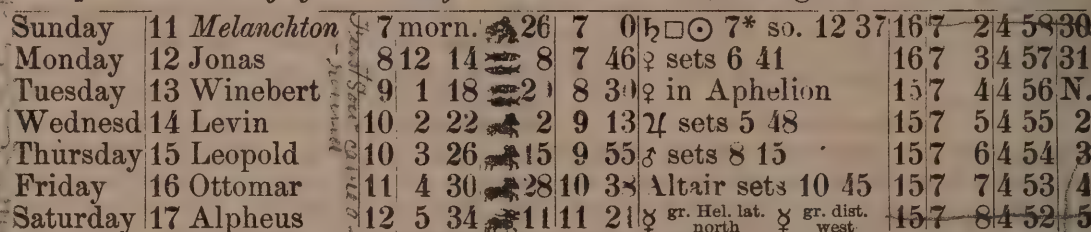 Sunday 11 Melanchton 7 morn. 26 7 0 ♄□☉ 7* so. 12 37 16 7 2 4 58 30
Monday 12 Jonas 8 12 14 8 7 46 ♀ sets 6 41 16 7 3 4 57 31
Tuesday 13 Winebert 9 1 18 8 ♀ in Aphelion 15 7 4 4 56 N.
Wednesd 14 Levin 10 2 22 2 9 13 ♃ sets 5 48 15 7 5 4 55 2
Thursday 15 Leopold 10 3 26 15 9 55 ♂ sets 8 15 15 7 6 4 54 3
Friday 16 Ottomar 11 4 30 28 10 38 Altair sets 10 45 15 7 7 4 53 4
Saturday 17 Alpheus 12 5 34 11 11 21 ☿ gr. Hel. lat. north ☿ gr. dist. west 15 7 8 4 52 5